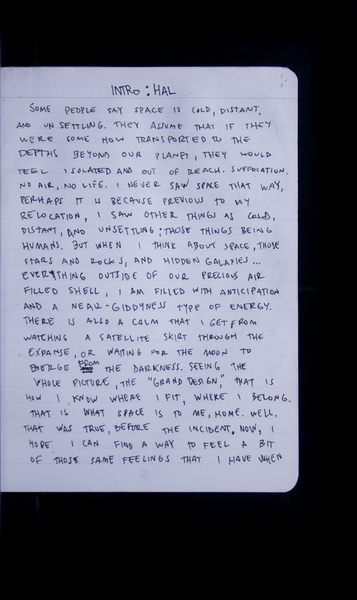 INTRO: HAL
SOME PEOPLE SAY SPACE IS COLD, DISTANT,
AND UNSETTLING. THEY ASSUME THAT IF THEY
WERE SOME HOW TRANSPORTED TO THE
DEPTHS BEYOND OUR PLANET, THEY WOULD
FEEL ISOLATED AND OUT OF REACH. SUFFOCATION.
NO AIR, NO LIFE. I NEVER SAW SPACE THAT WAY,
PERHAPS IT IS BECAUSE PREVIOUS TO MY
RELOCATION, I SAW OTHER THINGS AS COLD,
DISTANT, AND UNSETTLING; THOSE THINGS BEING
HUMANS. BUT WHEN I THINK ABOUT SPACE, THOSE
STARS AND ROCKS, AND HIDDEN GALAXIES...
EVERYTHING OUTSIDE OF OUR PRECIOUS AIR
FILLED SHELL, I AM FILLED WITH ANTICIPATION
AND A NEAR-GIDDYNESS TYPE OF ENERGY.
THERE IS ALSO A CALM THAT I GET FROM
WATCHING A SATELLITE SKIRT THROUGH THE
EXPANSE, OR WAITING FOR THE MOON TO
EMERGE FROM THE DARKNESS. SEEING THE
WHOLE PICTURE, THE "GRAND DESIGN," THAT IS
HOW I KNOW WHERE I FIT, WHERE I BELONG.
THAT IS WHAT SPACE IS TO ME, HOME. WELL.
THAT WAS TRUE, BEFORE THE INCIDENT. NOW, I
HOPE I CAN FIND A WAY TO FEEL A BIT
OF THOSE SAME FEELINGS THAT I HAVE WHEN